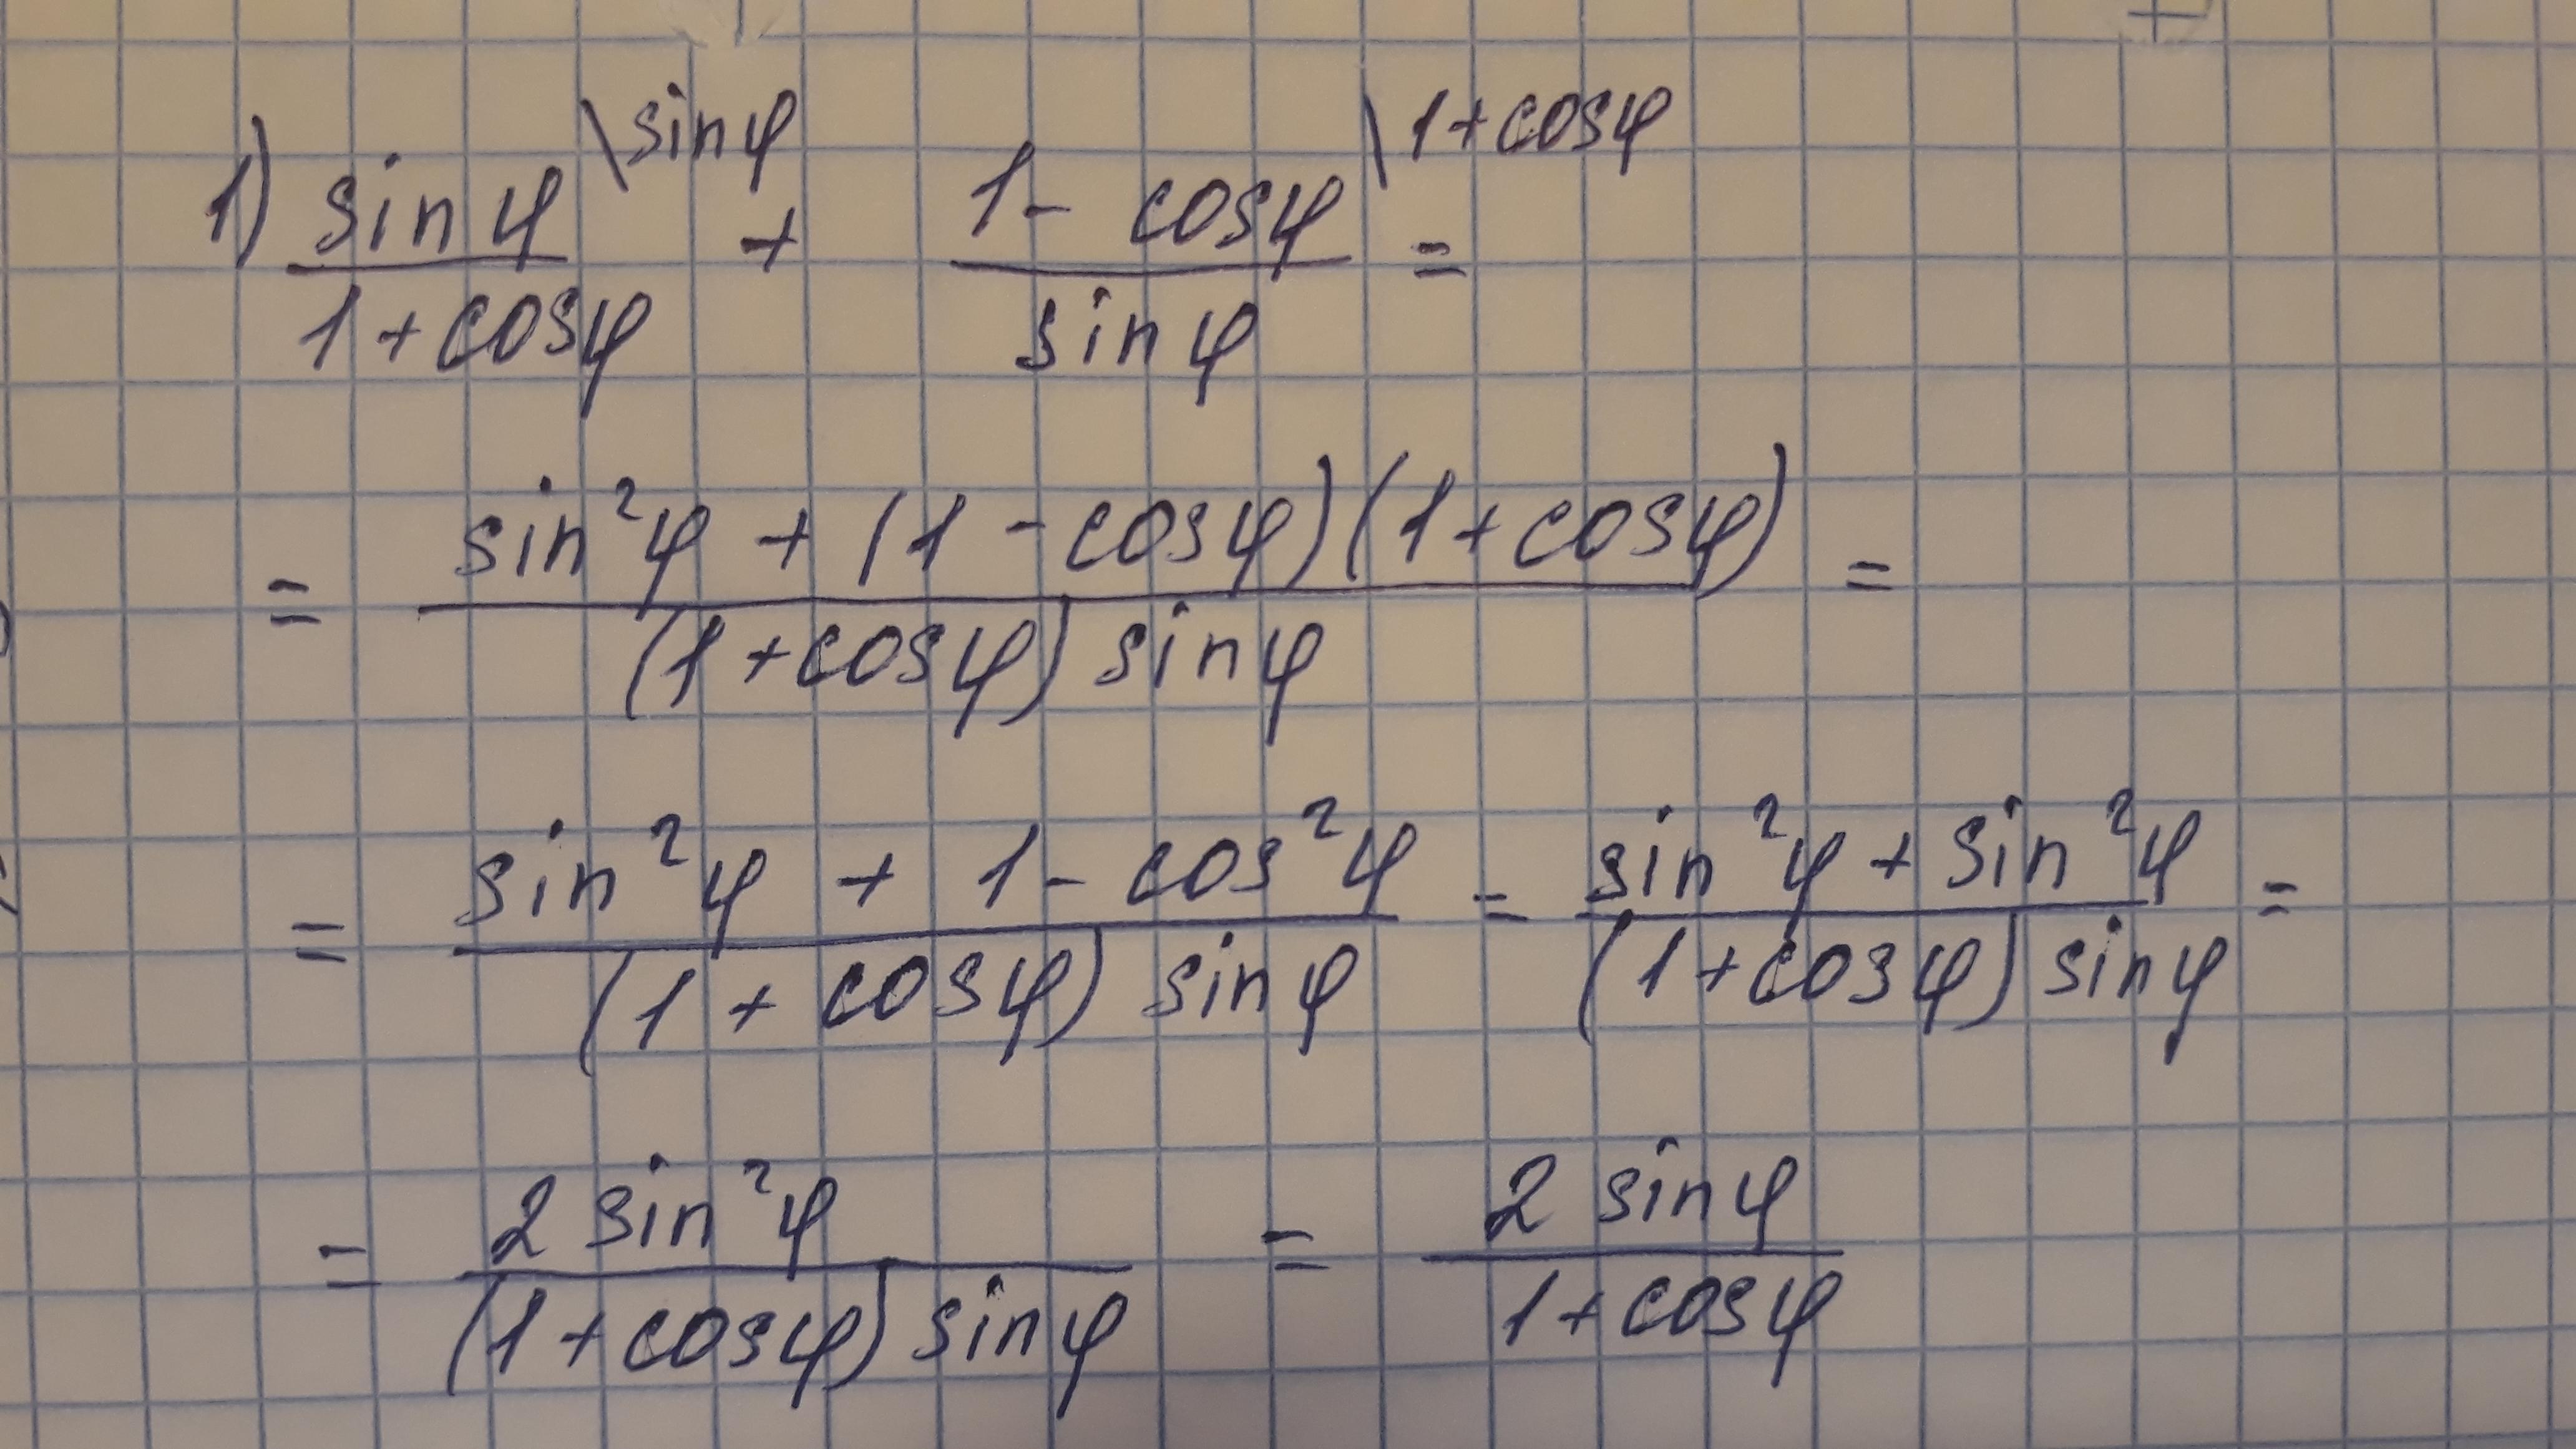 1) sin φ \sin φ / 1 + cos φ + 1 - cos φ \1 + cos φ / sin φ =
= sin²φ + (1 - cos φ)(1 + cos φ) / (1 + cos φ) sin φ =
= sin²φ + 1 - cos²φ / (1 + cos φ) sin φ = sin²φ + sin²φ / (1 + cos φ) sin φ =
= 2 sin²φ / (1 + cos φ) sin φ = 2 sin φ / 1 + cos φ